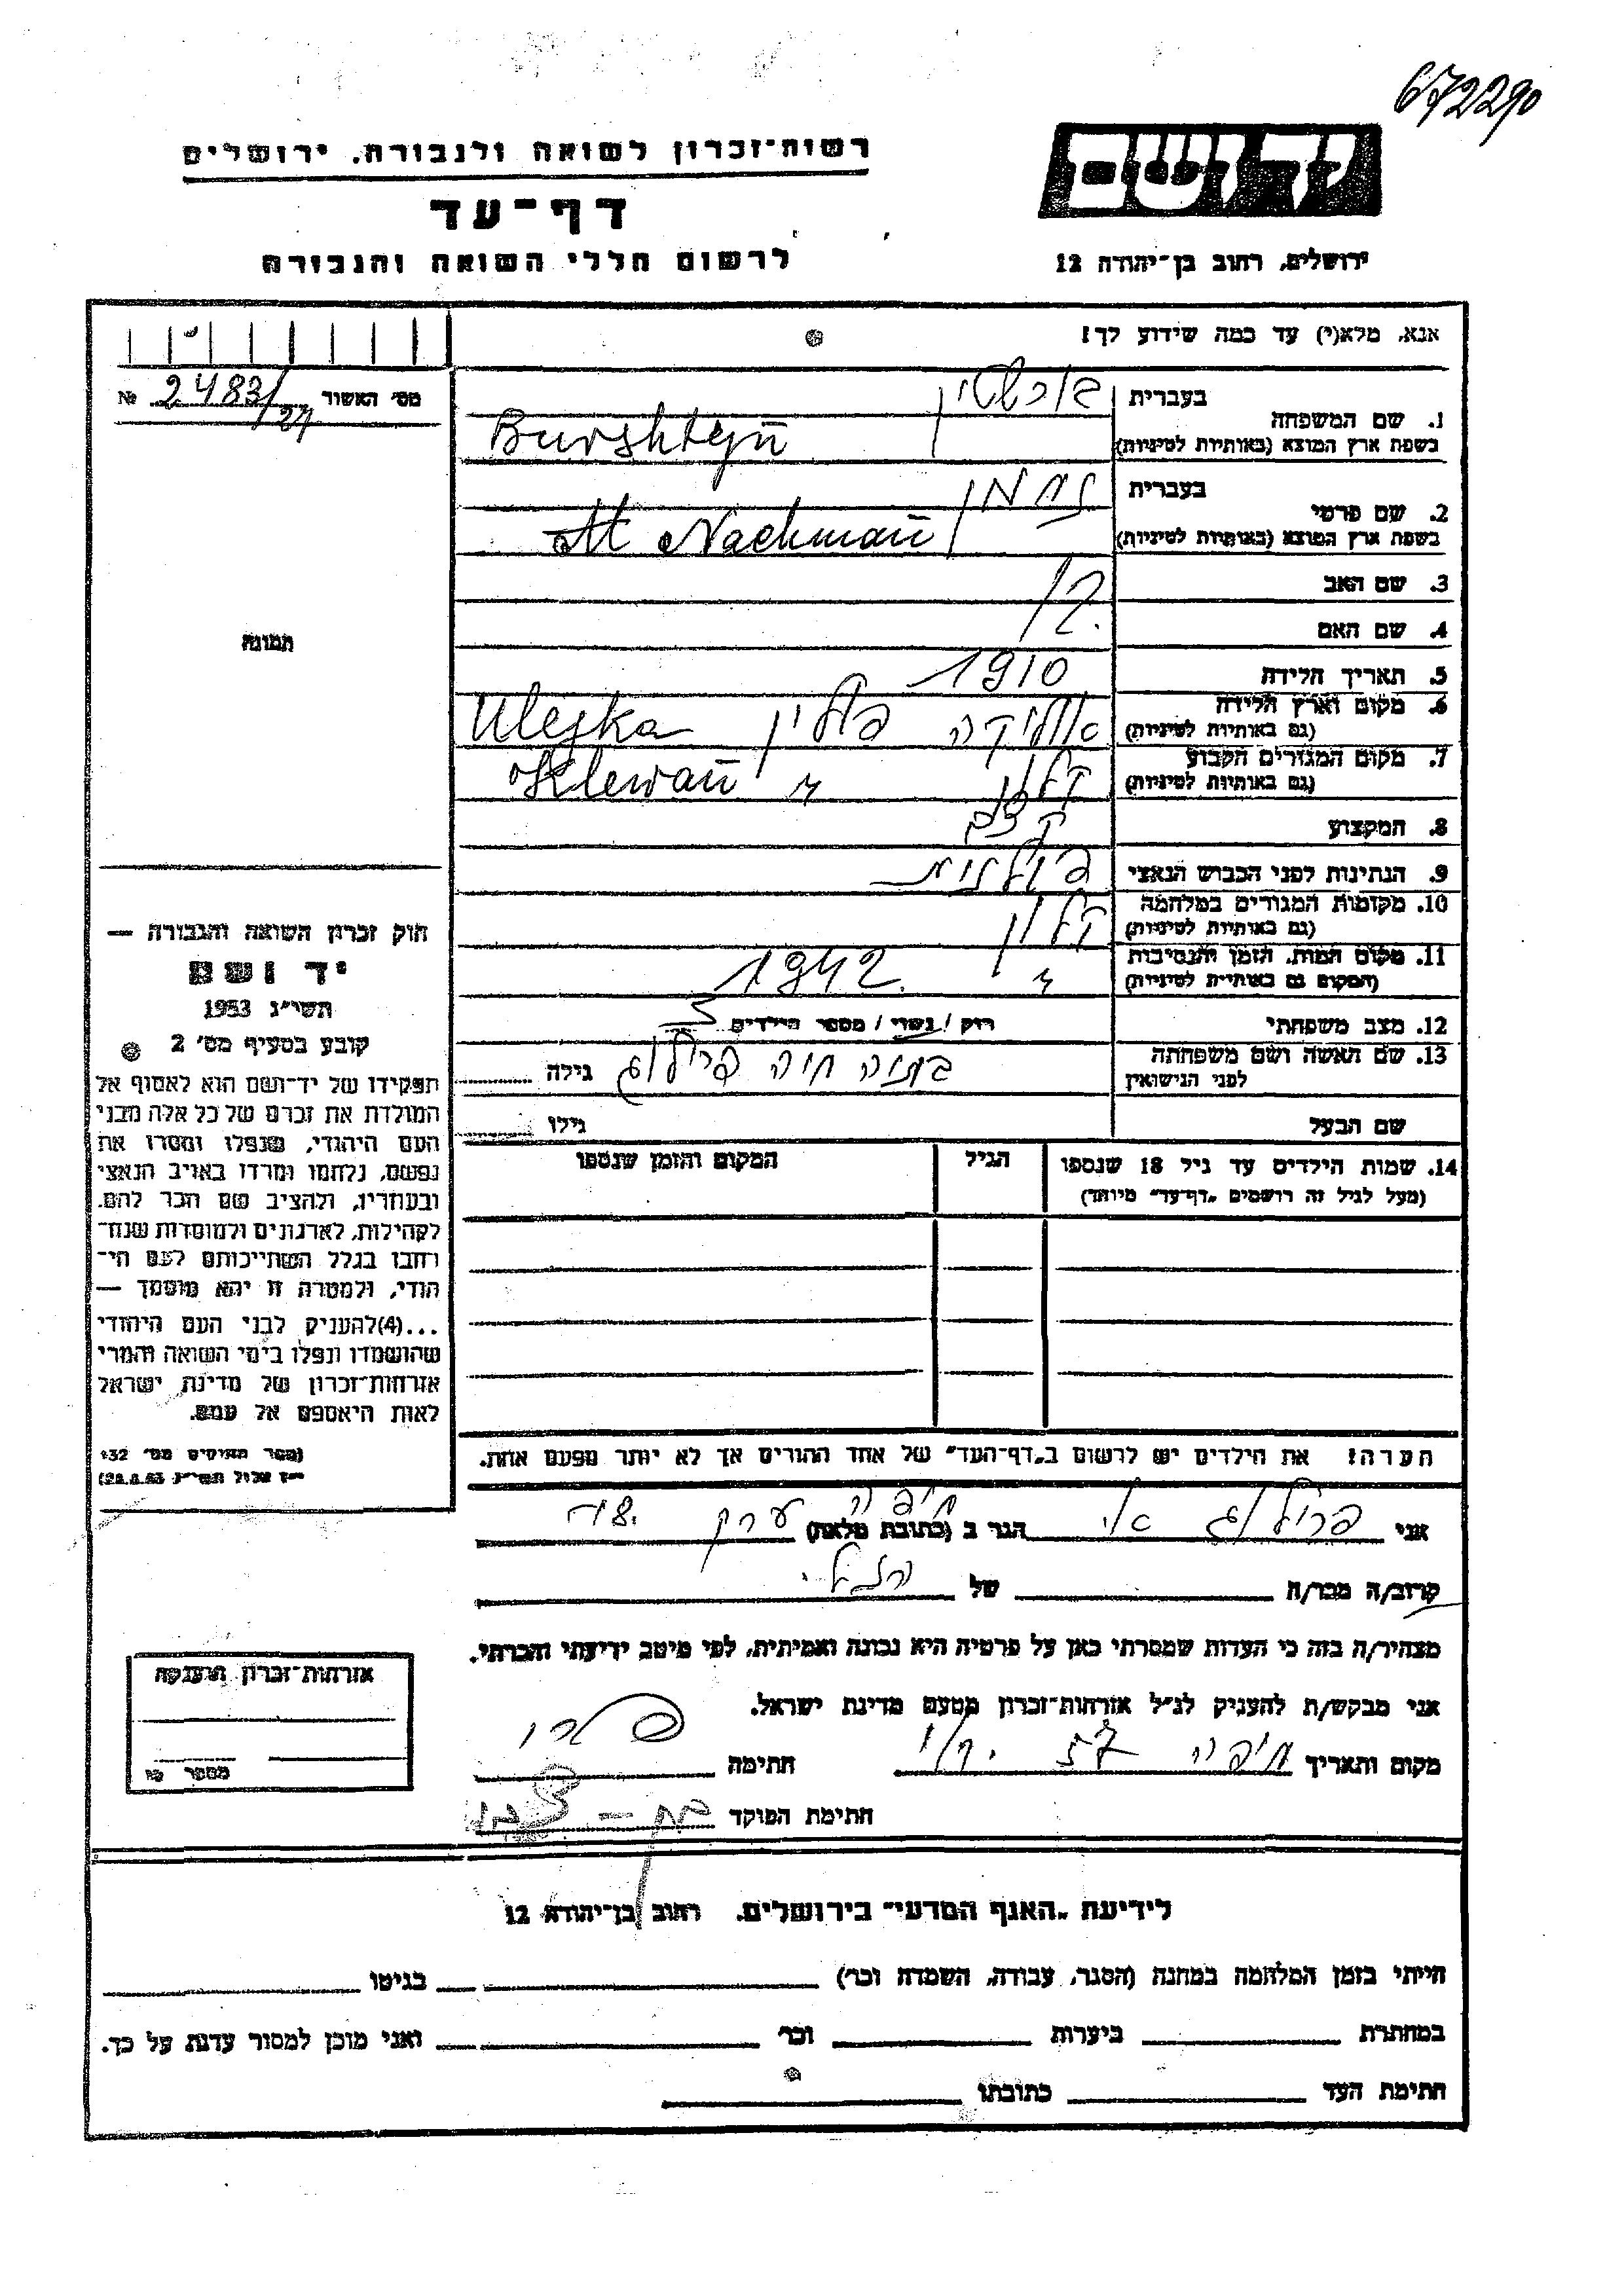 672290
רשות־זכרון לשואה ולגבורה, ירושלים
יד ושם
דף־עד
לרשום חללי השואה והגבורה
ירושלים, רחוב בן־יהודה 12
אנא, מלא(י) עד כמה שידוע לך!
מס׳ האשור № 2483/27
1. שם המשפחה
בעברית בורשטין
בשפת ארץ המוצא (באותיות לטיניות) Burshteyn
2. שם פרטי
בעברית נחמן
בשפת ארץ המוצא (באותיות לטיניות) Nachman
3. שם האב
4. שם האם
5. תאריך הלידה 1910
6. מקום וארץ הלידה פולין
(גם באותיות לטיניות) Ulejka
7. מקום המגורים הקבוע
(גם באותיות לטיניות) Klewan
8. המקצוע קצב
9. הנתינות לפני הכבוש הנאצי פולנית
10. מקומות המגורים במלחמה
(גם באותיות לטיניות)
11. מקום המות, הזמן והנסיבות
(המקום גם באותיות לטיניות) " 1942.
12. מצב משפחתי רוק / נשוי / מספר הילדים
13. שם האשה ושם משפחתה
לפני הנישואין חיה גילה
שם הבעל גילו
14. שמות הילדים עד גיל 18 שנספו
(מעל לגיל זה רושמים „דף־עד״ מיוחד)
הגיל
המקום והזמן שנספו
הערה! את הילדים יש לרשום ב„דף־העד״ של אחד ההורים אך לא יותר מפעם אחת.
תמונה
חוק זכרון השואה והגבורה —
יד ושם
תשי״ג 1953
קובע בסעיף מס׳ 2
תפקידו של יד־ושם הוא לאסוף אל
המולדת את זכרם של כל אלה מבני
העם היהודי, שנפלו ומסרו את
נפשם, נלחמו ומרדו באויב הנאצי
ובעוזריו, ולהציב שם וזכר להם,
לקהילות, לארגונים ולמוסדות שנח־
רבו בגלל השתייכותם לעם הי־
הודי, ולמטרה זו יהא מוסמך —
...(4)להעניק לבני העם היהודי
שהושמדו ונפלו בימי השואה והמרי
אזרחות־זכרון של מדינת ישראל
לאות היאספם אל עמם.
(ספר החוקים מס׳ 132
י״ז אלול תשי״ג 28.8.53)
אני הגר ב (כתובת מלאה) חיפה
קרוב/ה מכר/ה של
מצהיר/ה בזה כי העדות שמסרתי כאן על פרטיה היא נכונה ואמיתית, לפי מיטב ידיעתי והכרתי.
אני מבקש/ת להעניק לנ״ל אזרחות־זכרון מטעם מדינת ישראל.
מקום ותאריך חיפה חתימה
חתימת הפוקד
אזרחות־זכרון הוענקה
מספר
לידיעת „האגף המדעי״ בירושלים, רחוב בן־יהודה 12
הייתי בזמן המלחמה במחנה (הסגר, עבודה, השמדה וכר׳) בגיטו
במחתרת ביערות וכר׳ ואני מוכן למסור עדות על כך.
חתימת העד כתובתו